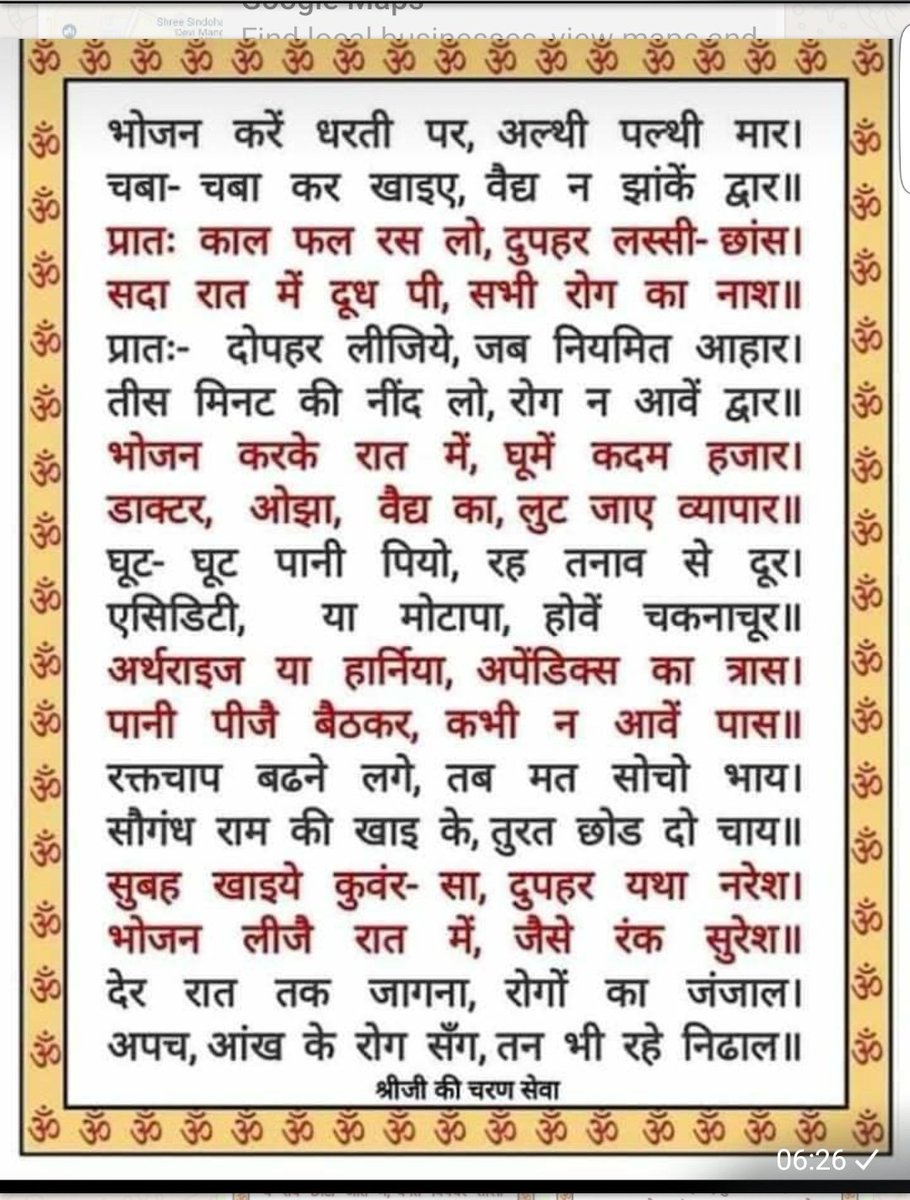 Google Maps
Shree Sindoha
Devi Mand
Find local businesses, view maps and
भोजन करें धरती पर, अल्थी पल्थी मार।
चबा- चबा कर खाइए, वैद्य न झांकें द्वार॥
प्रातः काल फल रस लो, दुपहर लस्सी- छांस।
सदा रात में दूध पी, सभी रोग का नाश॥
प्रातः- दोपहर लीजिये, जब नियमित आहार।
तीस मिनट की नींद लो, रोग न आवें द्वार॥
भोजन करके रात में, घूमें कदम हजार।
डाक्टर, ओझा, वैद्य का, लुट जाए व्यापार॥
घूट- घूट पानी पियो, रह तनाव से दूर।
एसिडिटी, या मोटापा, होवें चकनाचूर॥
अर्थराइज या हार्निया, अपेंडिक्स का त्रास।
पानी पीजै बैठकर, कभी न आवें पास॥
रक्तचाप बढने लगे, तब मत सोचो भाय।
सौगंध राम की खाइ के, तुरत छोड दो चाय॥
सुबह खाइये कुवंर- सा, दुपहर यथा नरेश।
भोजन लीजै रात में, जैसे रंक सुरेश॥
देर रात तक जागना, रोगों का जंजाल।
अपच, आंख के रोग सँग, तन भी रहे निढाल॥
श्रीजी की चरण सेवा
06:26